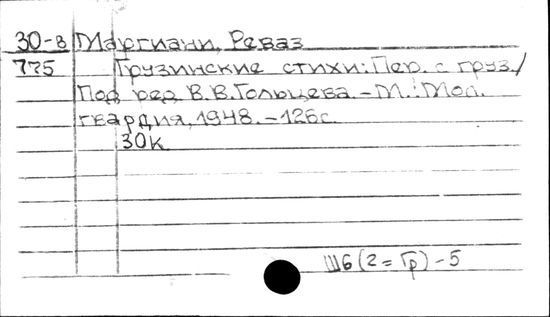 30-в Маргиани, Реваз
775 Грузинские стихи: Пер. с груз./
Под ред. В.В.Гольцева.-М.: Мол.
гвардия, 1948.-126с.
30к.
Ш6(2=Гр)-5